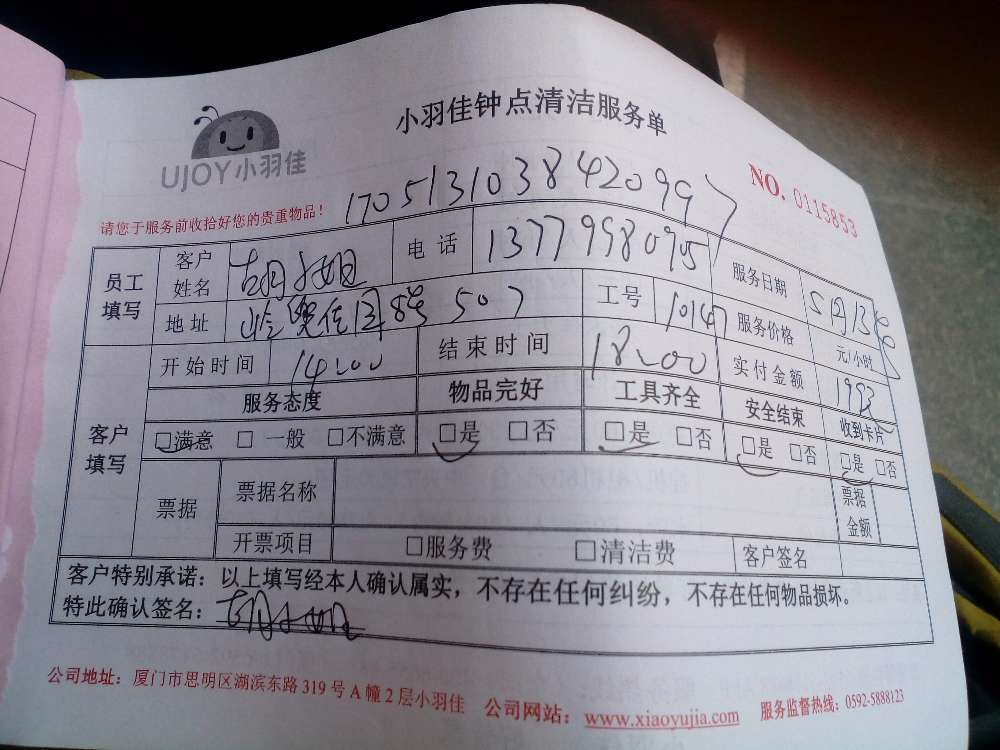 小羽佳钟点清洁服务单
UJOY小羽佳
NO. 0115853
请您于服务前收拾好您的贵重物品！
1705131038420997
员工填写 客户姓名 胡小姐 电话 13779998095 服务日期 5月13
地址 岭兜佳园8号507 工号 10147 服务价格 元/小时
客户填写 开始时间 14:00 结束时间 18:00 实付金额 198
服务态度 物品完好 工具齐全 安全结束 收到卡片
□满意 □一般 □不满意 □是 □否 □是 □否 □是 □否 □是 □否
票据 票据名称 票据金额
开票项目 □服务费 □清洁费 客户签名
客户特别承诺：以上填写经本人确认属实，不存在任何纠纷，不存在任何物品损坏。
特此确认签名：胡小姐
公司地址：厦门市思明区湖滨东路319号A幢2层小羽佳 公司网站：www.xiaoyujia.com 服务监督热线：0592-5888123